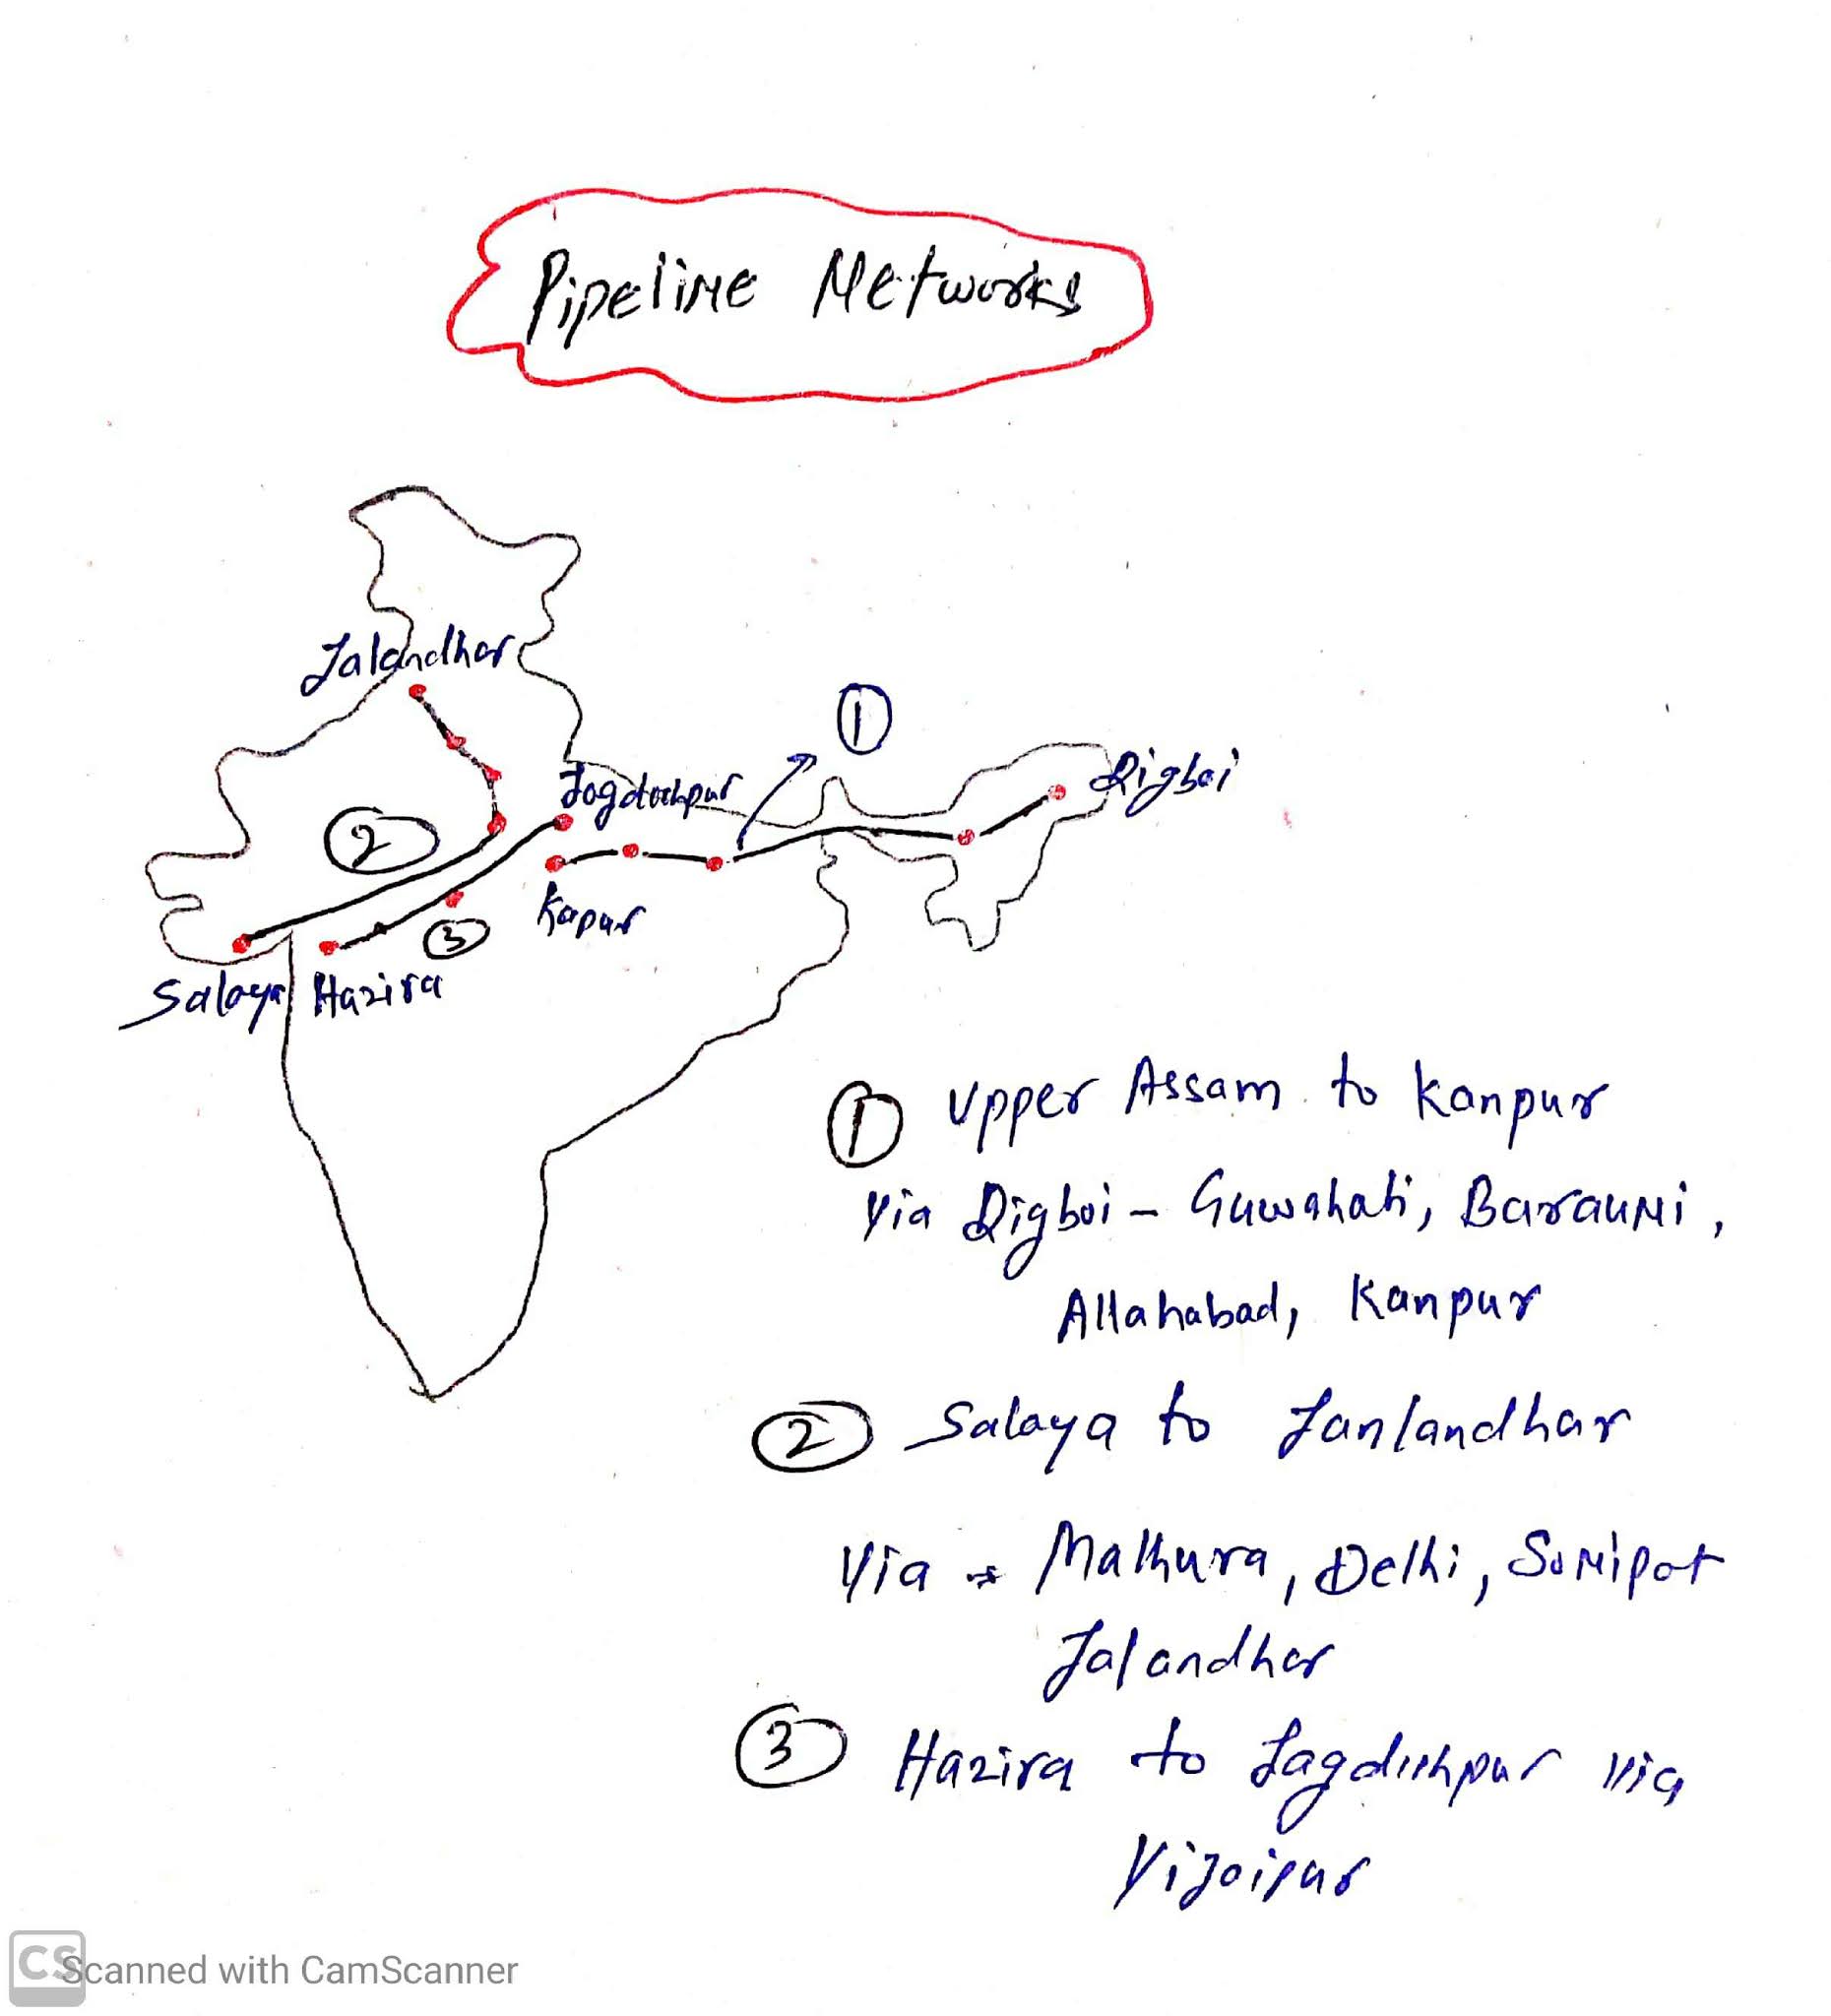 Pipeline Networks
Jalandhar
①
Digboi
Jagdishpur
②
Kapur
③
Salaya Hazira
① Upper Assam to Kanpur
Via Digboi - Guwahati, Barauni,
Allahabad, Kanpur
② Salaya to Janlandhar
Via → Mathura, Delhi, Sonipat
Jalandhar
③ Hazira to Jagdishpur via
Vijaipur
CS Scanned with CamScanner